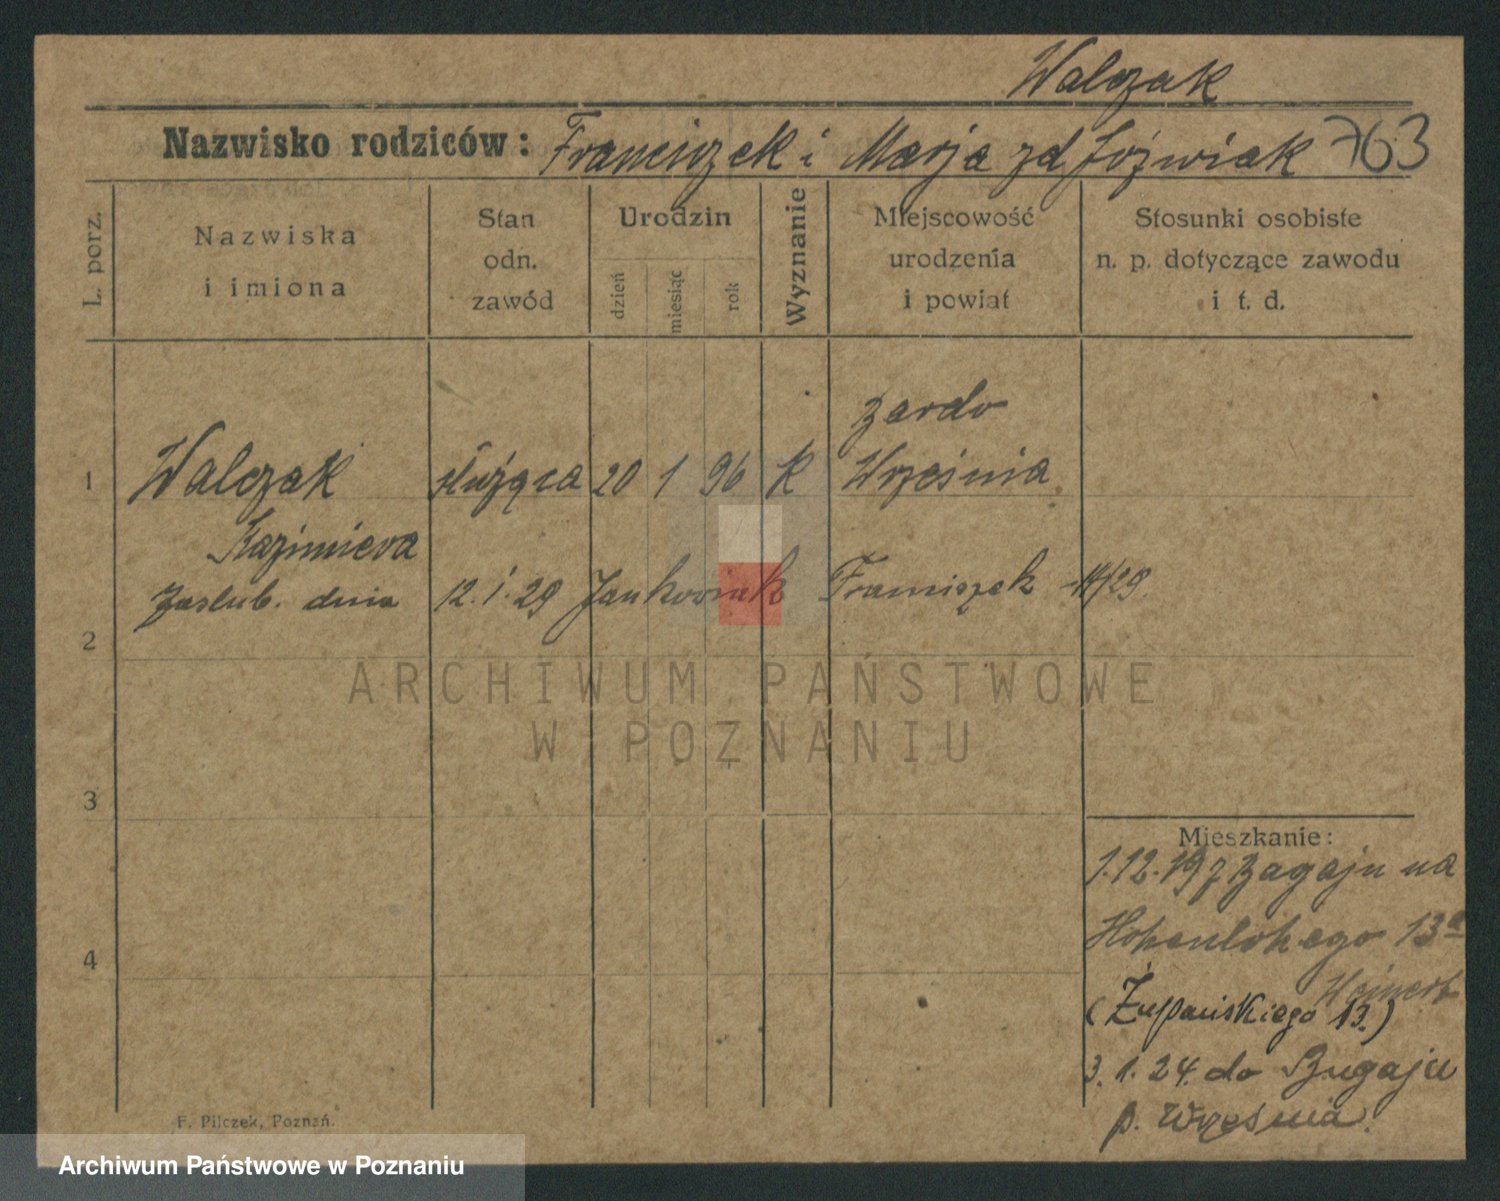 Walczak
Nazwisko rodziców: Franciszek i Marja zd Jóźwiak 763
L. porz.
Nazwiska
i imiona
Stan
odn.
zawód
Urodzin
dzień
miesiąc
rok
Wyznanie
Miejscowość
urodzenia
i powiat
Stosunki osobiste
n. p. dotyczące zawodu
i t. d.
1 Walczak służąca 20 1 96 K
Września
Kazimiera
Zaslub. dnia 12.1.29 Jankowiak Franciszek
2
3
4
Mieszkanie:
1.12.19 z Zagaju na
Hohenlohego 13a
(Żupańskiego 13.)
3.1.24. do Bugaju
p. Września.
F. Pilczek, Poznań.
ARCHIWUM PAŃSTWOWE
W POZNANIU
Archiwum Państwowe w Poznaniu